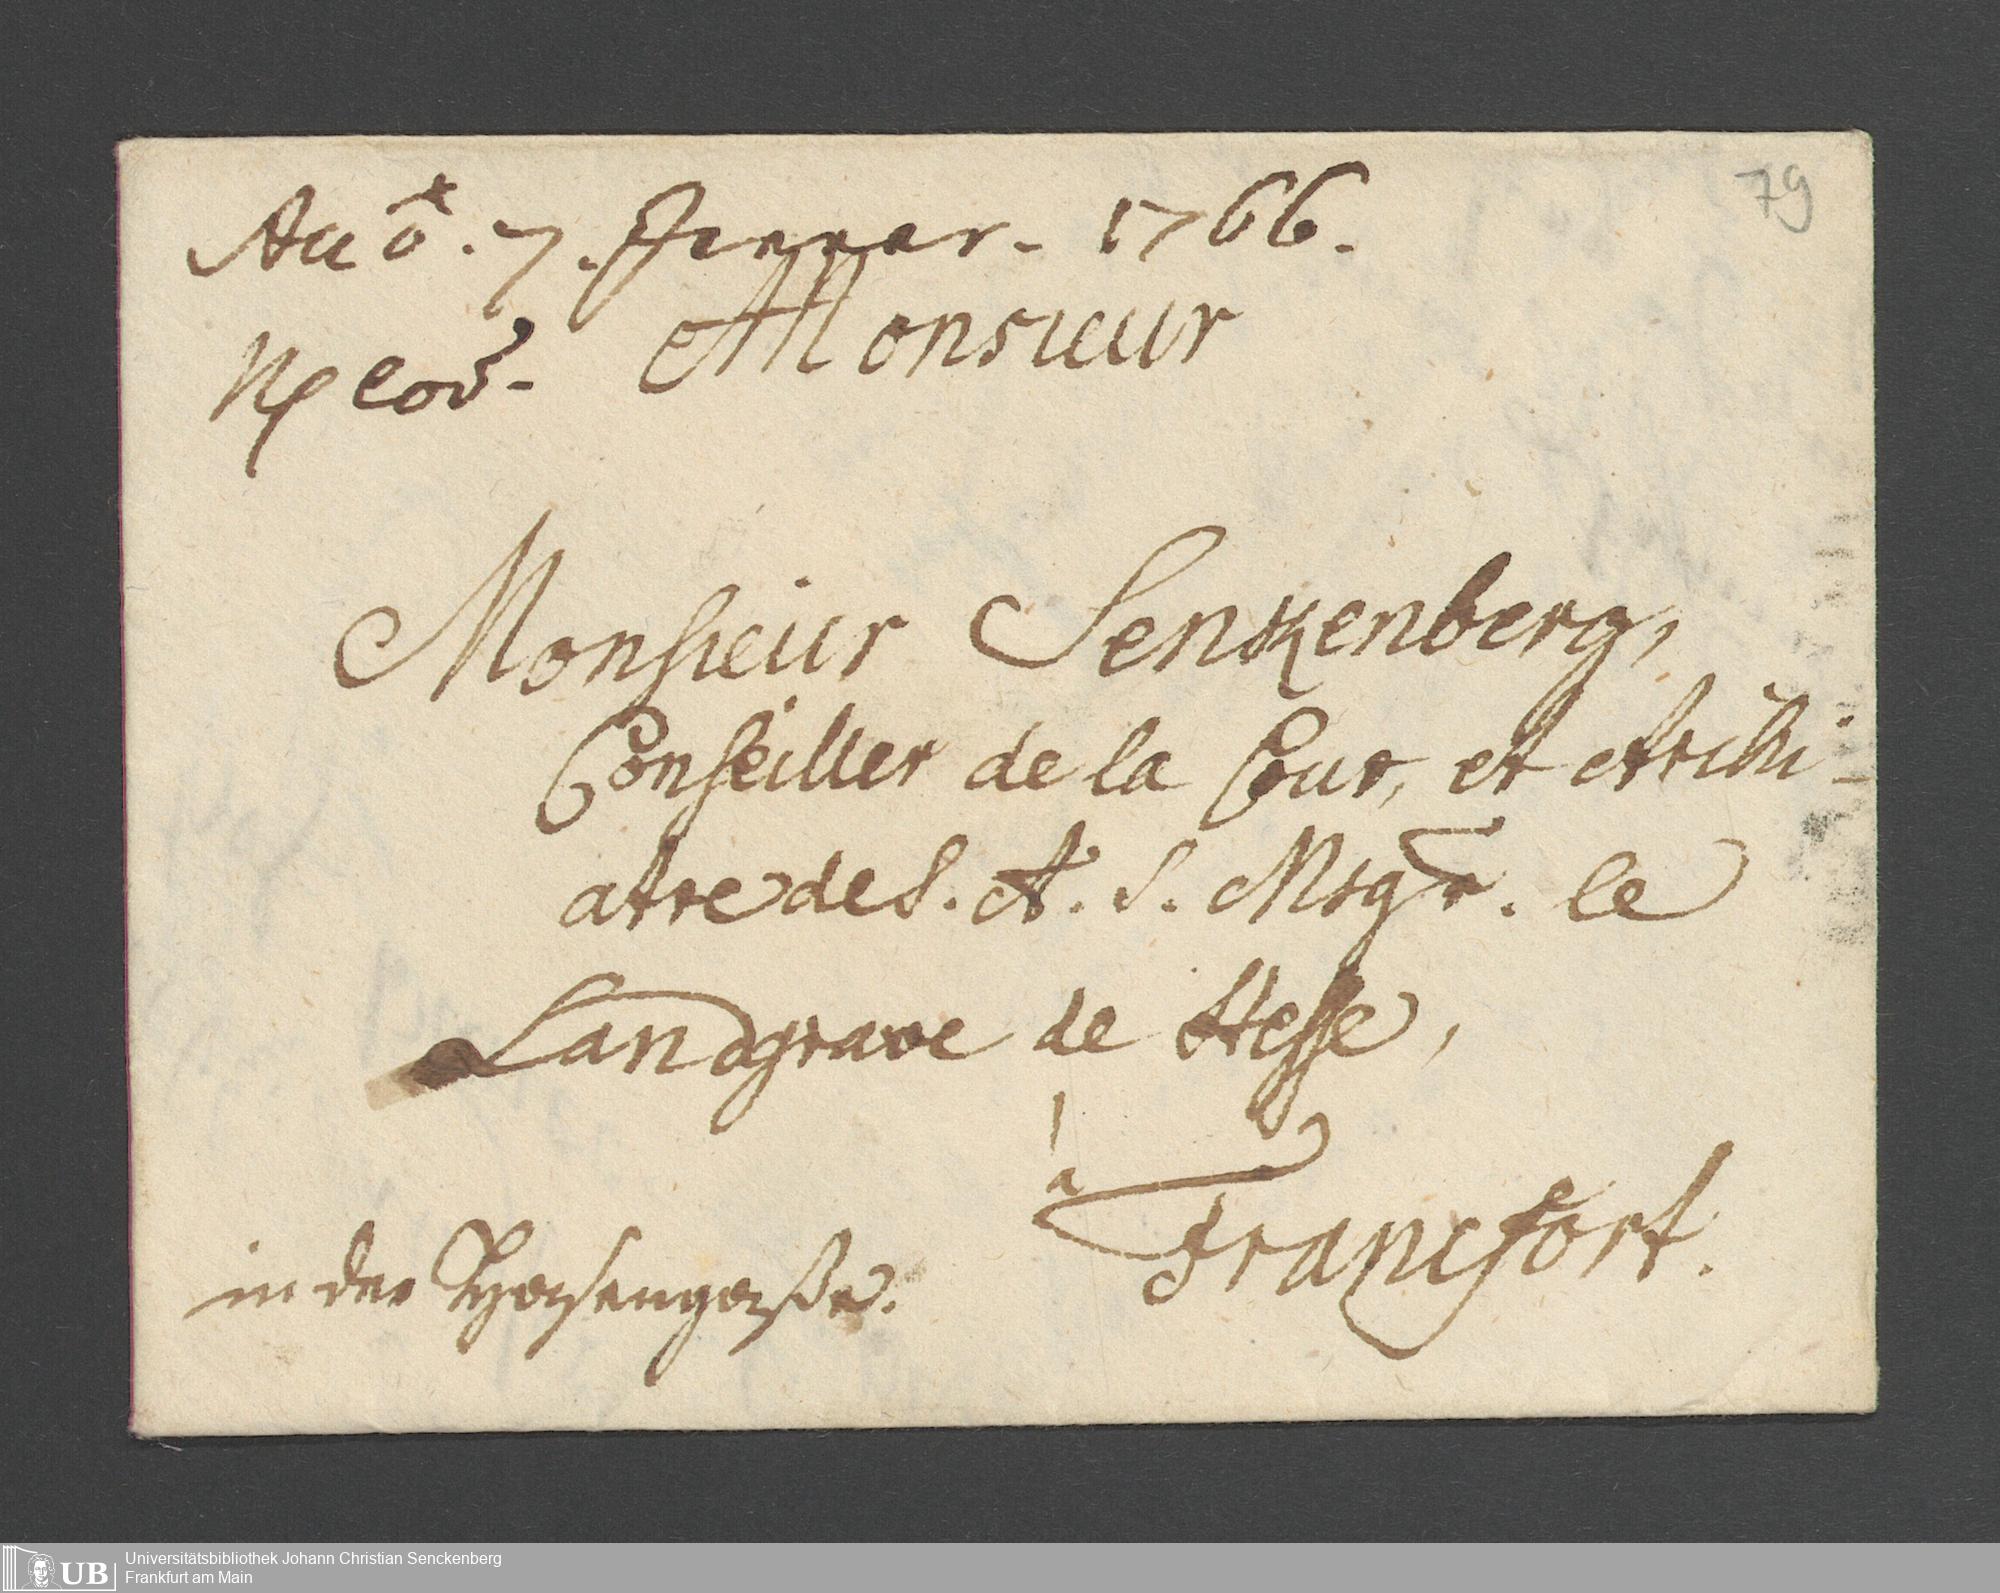 79
7. Januar. 1766.
Monsieur
Monsieur Senkenberg,
Conseiller de la Cour, et Archi-
atre de S. A. S. Msgr. le
Landgrave de Hesse,
à
Francfort.
in der Haasengasse.
Universitätsbibliothek Johann Christian Senckenberg
Frankfurt am Main
UB